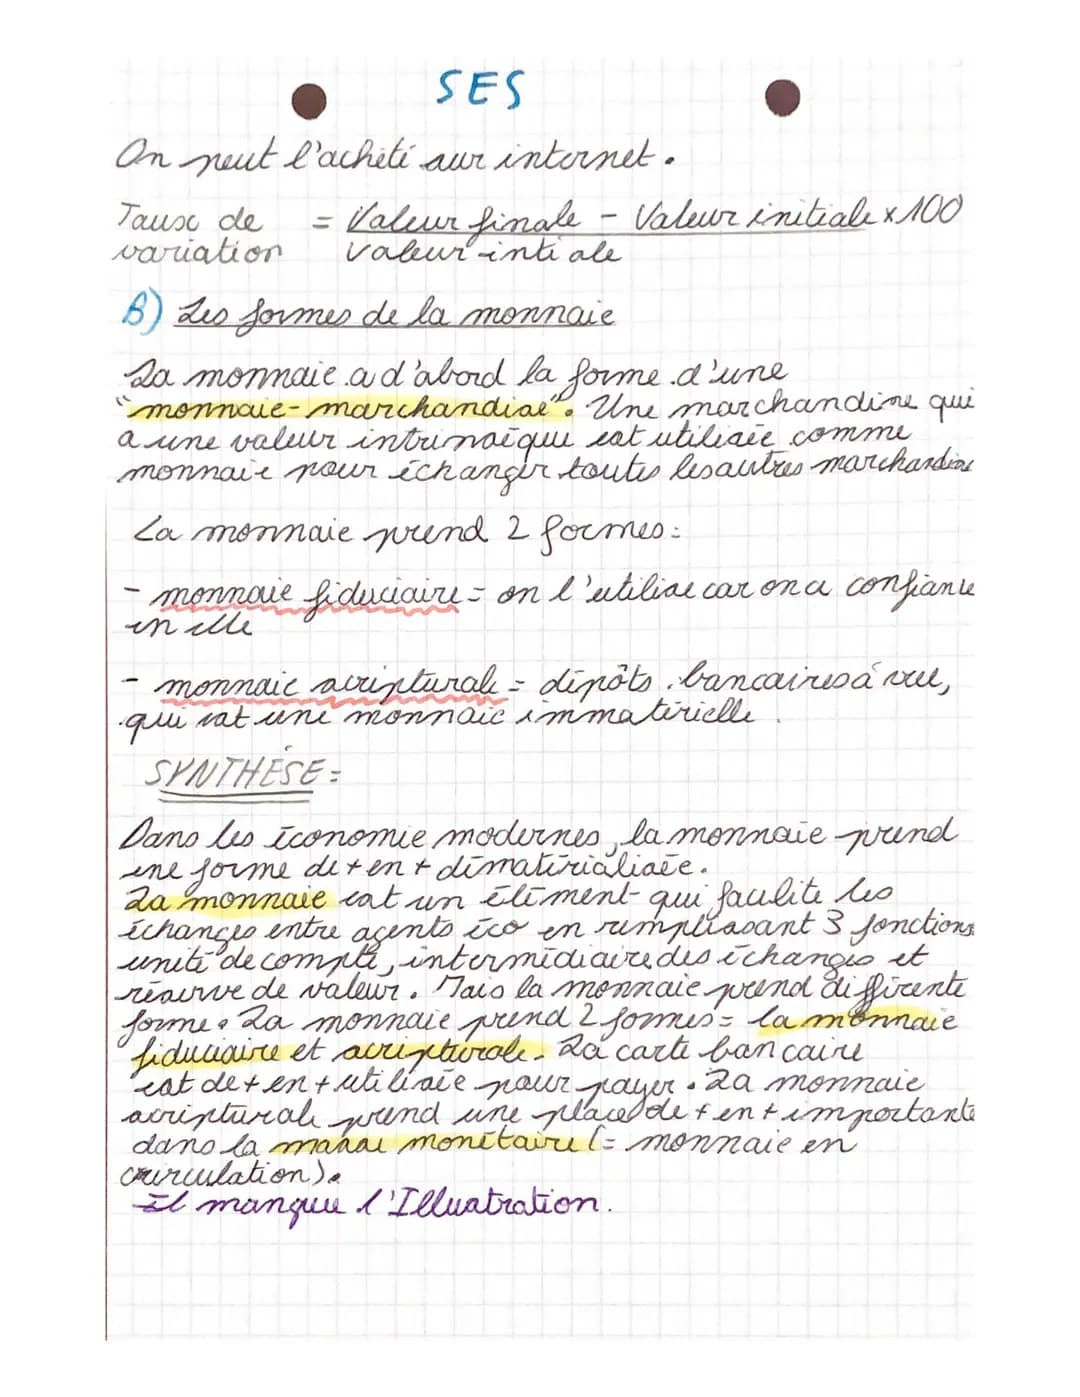 SES
On peut l'acheté sur internet.
Taux de = Valeur finale - Valeur initiale x 100
variation Valeur intiale
B) Les formes de la monnaie
La monnaie a d'abord la forme d'une
"monnaie-marchandise". Une marchandise qui
a une valeur intrinsèque est utilisée comme
monnaie pour échanger toutes les autres marchandise
La monnaie prend 2 formes:
- monnaie fiduciaire = on l'utilise car on a confiance
en elle
- monnaie scripturale = dépôts bancaires à vue,
qui est une monnaie immatérielle.
SYNTHÈSE =
Dans les économie modernes, la monnaie prend
une forme de + en + dématérialisée.
La monnaie est un élément qui facilite les
échanges entre agents éco en remplissant 3 fonctions
unité de compte, intermédiaire des échanges et
réserve de valeur. Mais la monnaie prend différente
forme. La monnaie prend 2 formes = la monnaie
fiduciaire et scripturale. La carte bancaire
est de + en + utilisée pour payer. La monnaie
scripturale prend une place de + en + importante
dans la masse monétaire (= monnaie en
circulation).
Il manque l'Illustration.